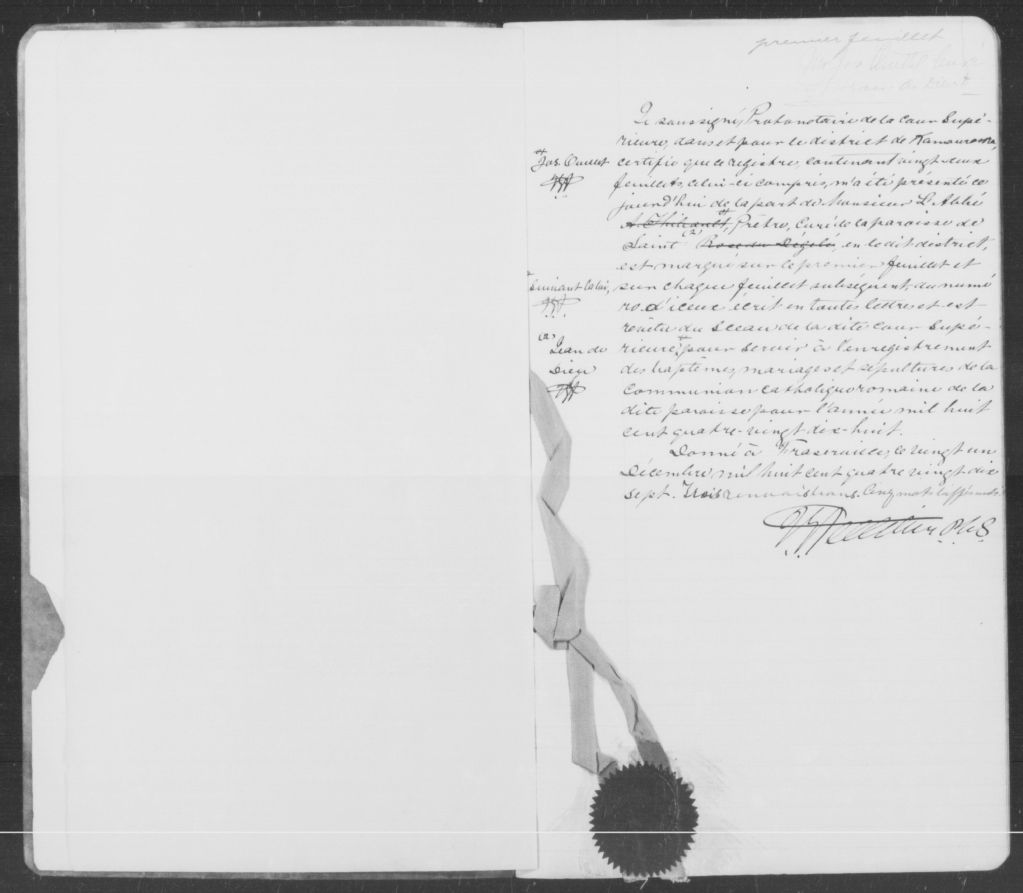 premier feuillet
Je soussigné, Protonotaire de la Cour Supé-
rieure, dans et pour le district de Kamouraska,
certifie que ce registre, contenant vingt-deux
feuillets, celui-ci compris, m'a été présenté ce
jourd'hui de la part de Monsieur L'Abbé
A. Thibault, Prêtre, Curé de la paroisse de
Saint Rose du Dégelé, en le dit district,
est marqué sur le premier feuillet et
sur chaque feuillet subséquent, du numé
ro d'iceux écrit en toutes lettres et est
revêtu du Sceau de la dite Cour Supé-
rieure, pour servir à l'enregistrement
des baptêmes, mariages et sépultures de la
Communion Catholique romaine de la
dite paroisse pour l'année mil huit
cent quatre-vingt dix-huit.
Donné à Fraserville, le vingt un
Décembre, mil huit cent quatre vingt dix
sept. Trois renvois bons. Cinq mots
P.C.S.
Jos. Ouellet
suivant la loi,
(a)
Jean de
Dieu